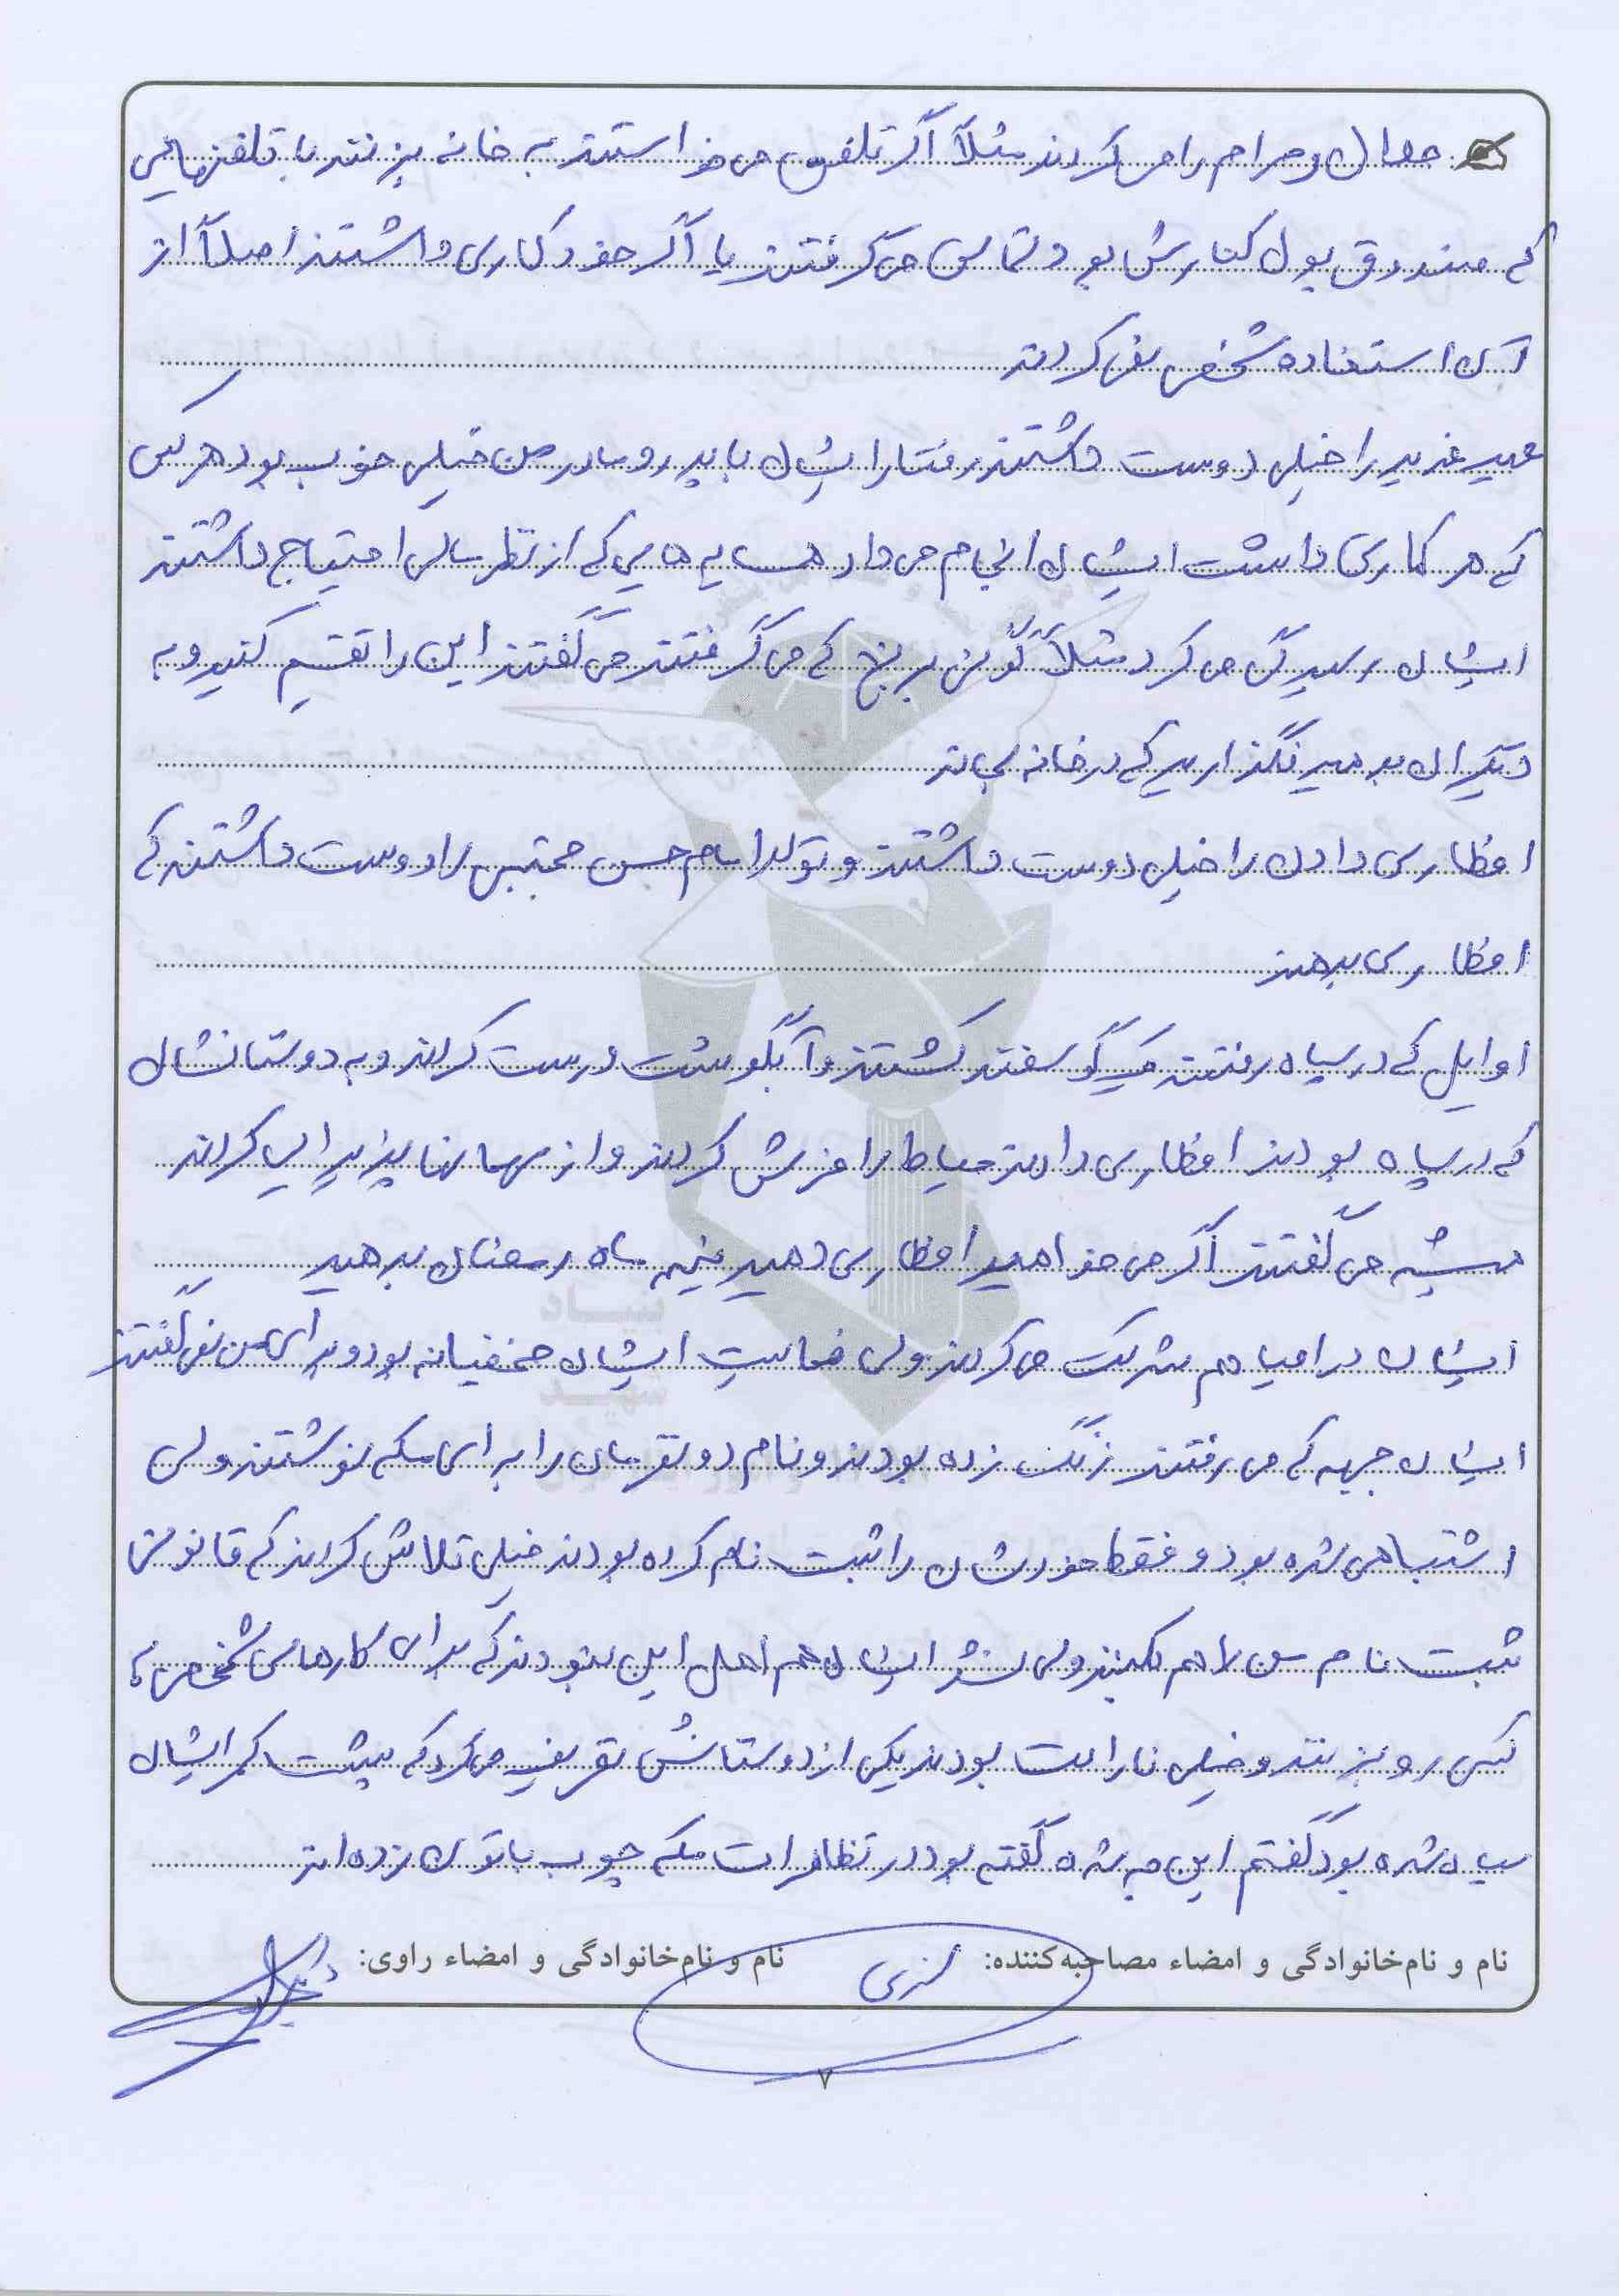 حلال و حرام را می کردند مثلاً اگر تلفن می خواستند به خانه بزنند با تلفنهایی
که صندوق پول کنارش بود تماس می گرفتند یا اگر خودکاری داشتند اصلاً از
آن استفاده شخصی نمی کردند
عید غدیر را خیلی دوست داشتند رفتار ایشان با پدر و مادر من خیلی خوب بود هر کس
که هر کاری داشت ایشان انجام می داد همسایه هایی که از نظر مالی احتیاج داشتند
ایشان رسیدگی می کرد مثلاً گونی برنج که می گرفتند می گفتند این را تقسیم کنید و به
دیگران بدهید نگذارید که در خانه بماند
افطاری دادن را خیلی دوست داشتند و تولد امام حسن مجتبی را دوست داشتند که
افطاری بدهند
اوایل که در سپاه رفتند یک گوسفند کشتند و آبگوشت درست کردند و به دوستانشان
که در سپاه بودند افطاری دادند حیاط را فرش کردند و از مهمانها پذیرایی کردند
همیشه می گفتند اگر می خواهید افطاری دهید نیمه ماه رمضان بدهید
ایشان در احیا هم شرکت می کردند ولی فعالیت ایشان مخفیانه بود و برای من نمی گفتند
ایشان جبهه که می رفتند زنگ زده بودند و نام دو نفرمان را برای مکه نوشتند ولی
اشتباهی شده بود و فقط خودشان را ثبت نام کرده بودند خیلی تلاش کردند که قانونی
ثبت نام من را هم بکنند ولی نشد ایشان هم اهل این نبودند که برای کارهای شخصی به
کسی رو بزنند و خیلی ناراحت بودند یکی از دوستانش تعریف می کرد که پشت کمر ایشان
سیاه شده بود گفتم این چه شده گفته بود در تظاهرات مکه چوب باتون زده اند
نام و نام‌خانوادگی و امضاء مصاحبه‌کننده:
نام و نام‌خانوادگی و امضاء راوی:
۷